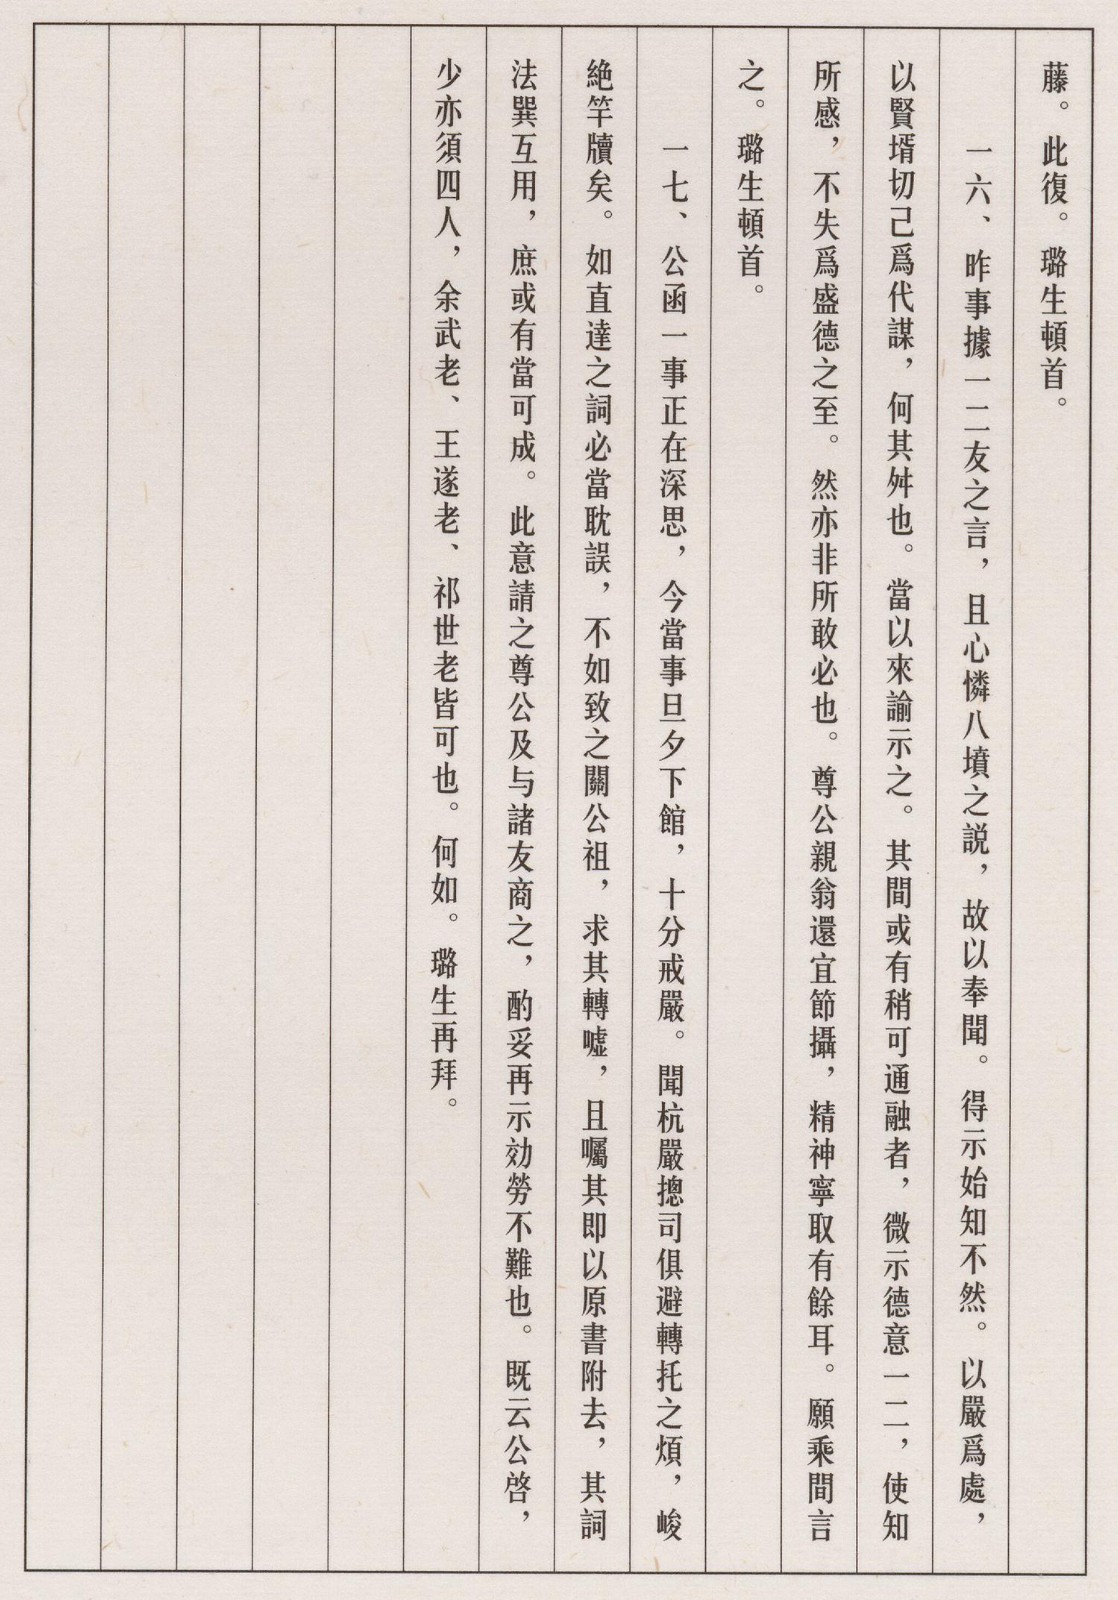 藤。此復。璐生頓首。
一六、昨事據一二友之言，且心憐八墳之説，故以奉聞。得示始知不然。以嚴爲處，
以賢壻切己爲代謀，何其舛也。當以來諭示之。其間或有稍可通融者，微示德意一二，使知
所感，不失爲盛德之至。然亦非所敢必也。尊公親翁還宜節攝，精神寧取有餘耳。願乘間言
之。璐生頓首。
一七、公函一事正在深思，今當事旦夕下館，十分戒嚴。聞杭嚴摠司俱避轉托之煩，峻
絶竿牘矣。如直達之詞必當耽誤，不如致之關公祖，求其轉嘘，且囑其即以原書附去，其詞
法巽互用，庶或有當可成。此意請之尊公及与諸友商之，酌妥再示効勞不難也。既云公啓，
少亦須四人，余武老、王遂老、祁世老皆可也。何如。璐生再拜。